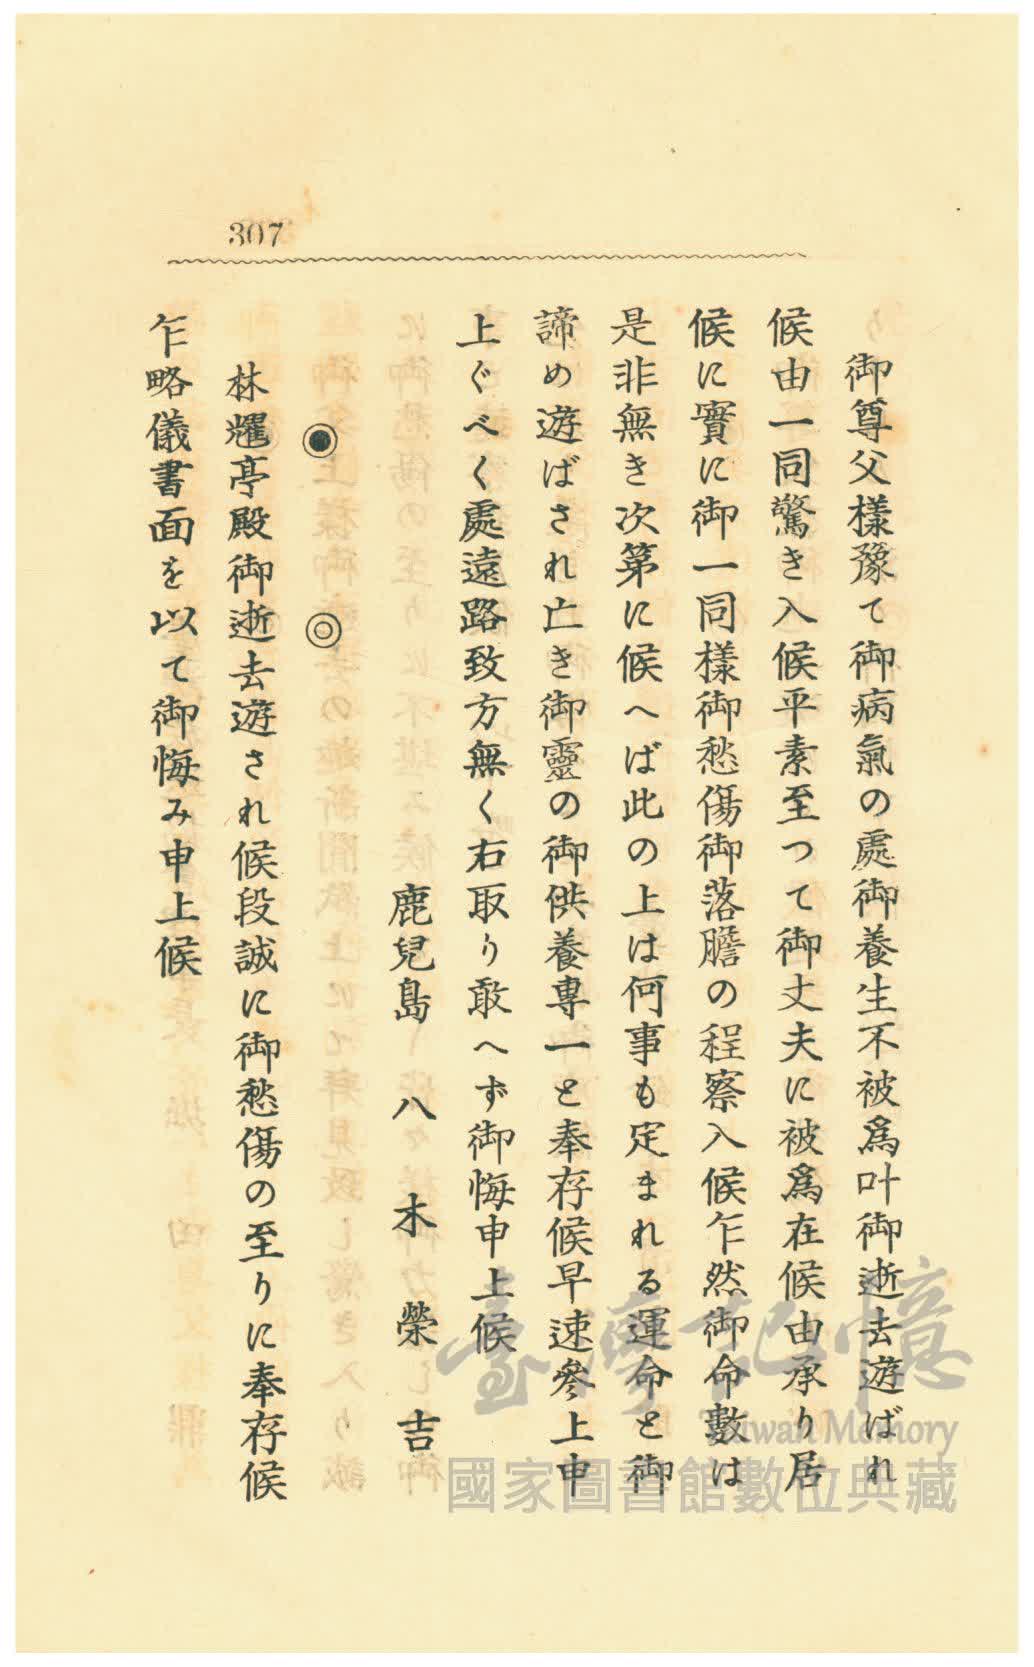 307
御尊父樣豫て御病氣の處御養生不被爲叶御逝去遊ばれ
候由一同驚き入候平素至つて御丈夫に被爲在候由承り居
候に實に御一同樣御愁傷御落膽の程察入候乍然御命數は
是非無き次第に候へば此の上は何事も定まれる運命と御
諦め遊ばされ亡き御靈の御供養專一と奉存候早速參上申
上ぐべく處遠路致方無く右取り敢へず御悔申上候
鹿兒島 八木榮吉
林耀亭殿御逝去遊され候段誠に御愁傷の至りに奉存候
乍略儀書面を以て御悔み申上候
臺灣記憶
Taiwan Memory
國家圖書館數位典藏